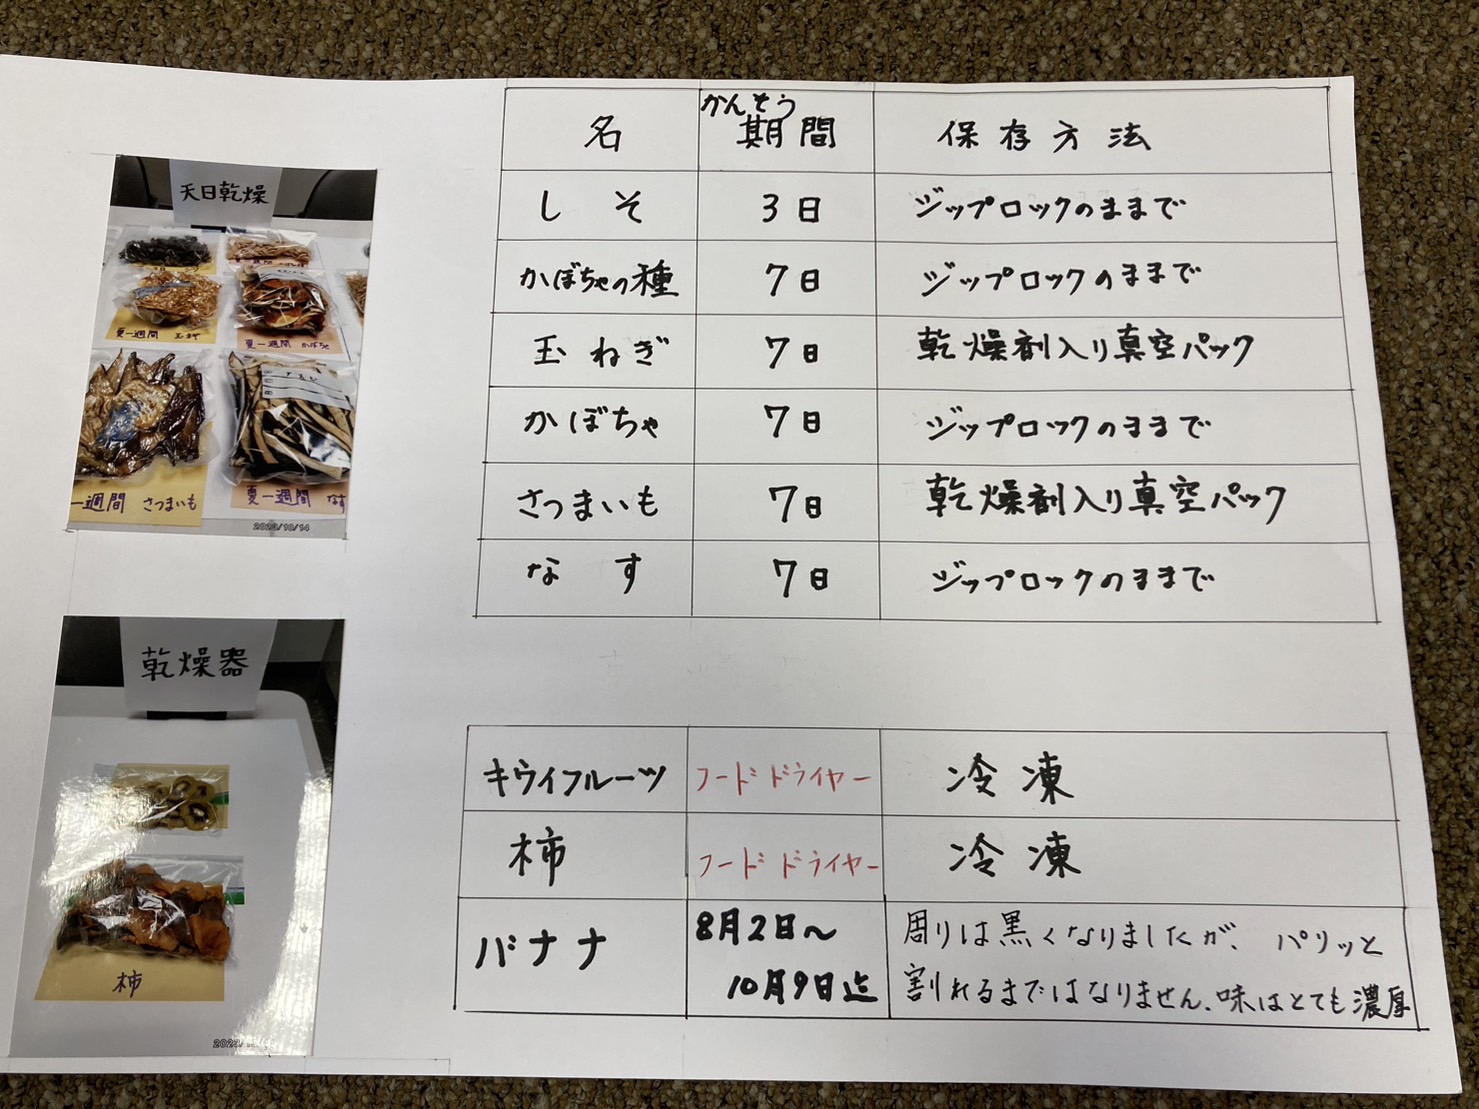 天日乾燥
夏一週間 玉ねぎ
夏一週間 かぼちゃ
一週間 さつまいも
夏一週間 なす
2023/10/14
名 かんそう期間 保存方法
しそ 3日 ジップロックのままで
かぼちゃの種 7日 ジップロックのままで
玉ねぎ 7日 乾燥剤入り真空パック
かぼちゃ 7日 ジップロックのままで
さつまいも 7日 乾燥剤入り真空パック
なす 7日 ジップロックのままで
乾燥器
柿
キウイフルーツ フードドライヤー 冷凍
柿 フードドライヤー 冷凍
バナナ 8月2日〜 周りは黒くなりましたが、パリッと
10月9日迄 割れるまではなりません、味はとても濃厚